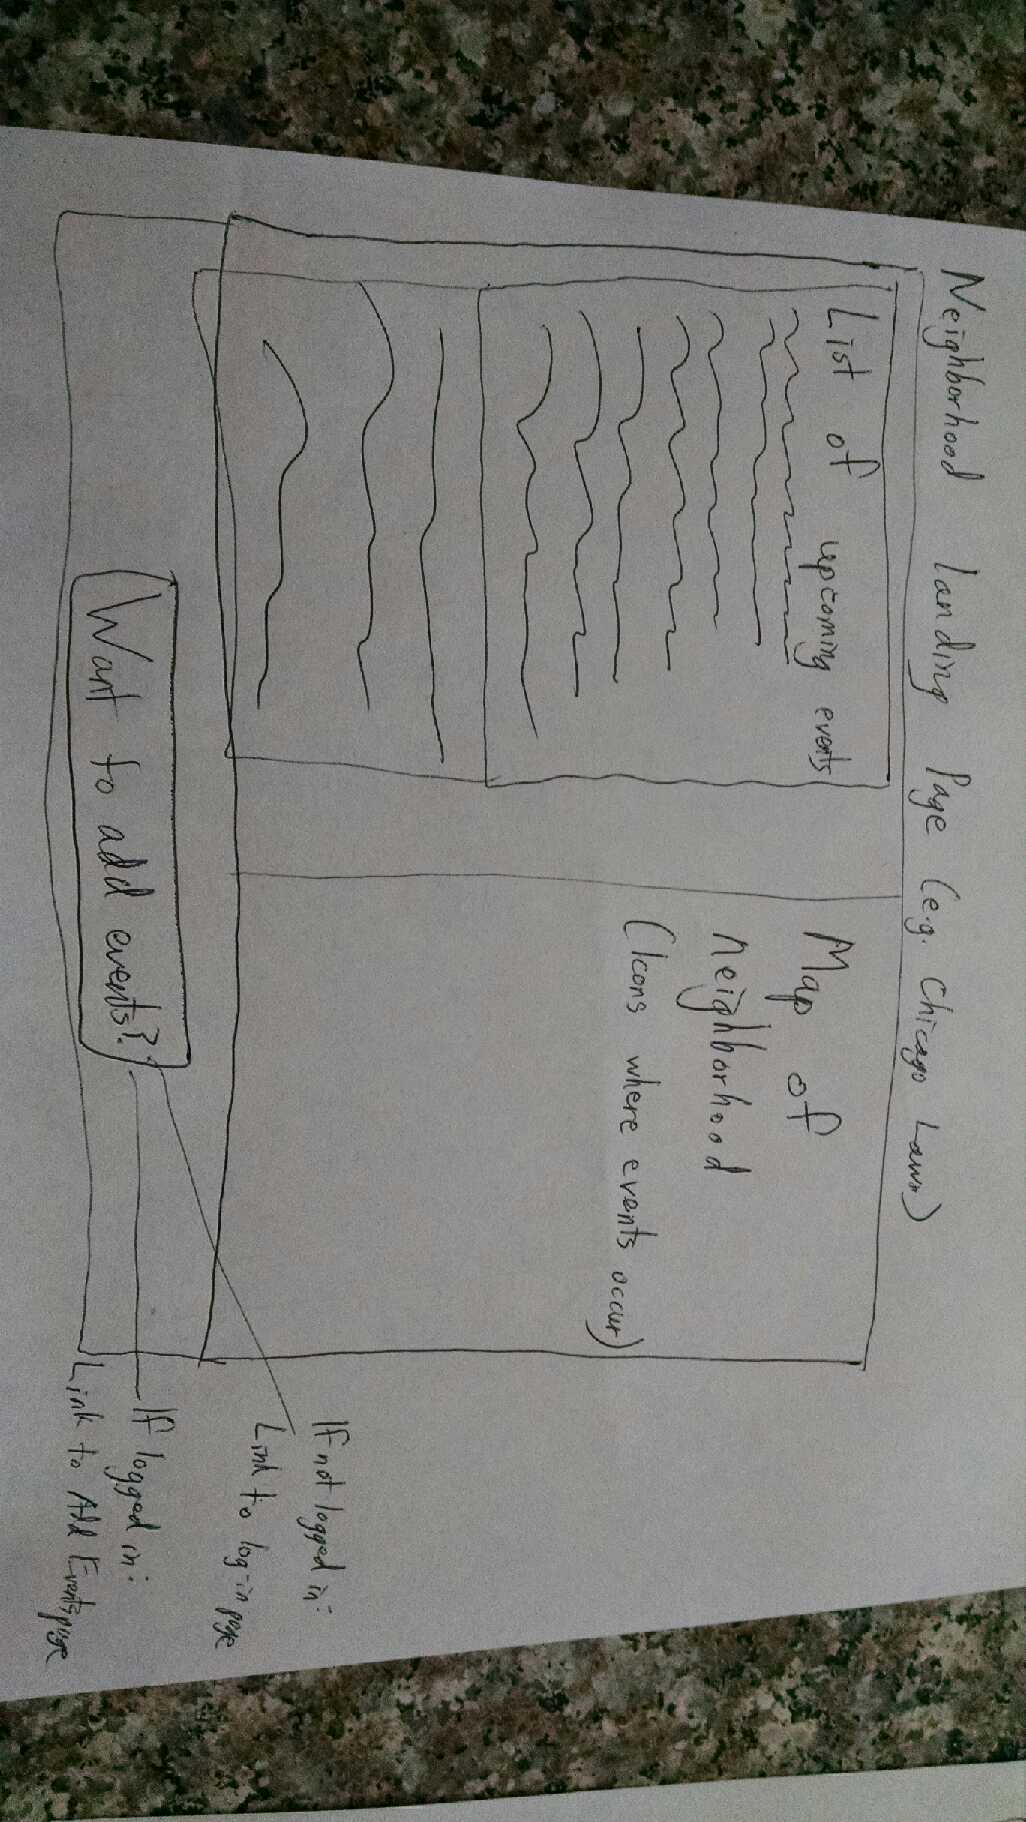 Neighborhood landing Page (e.g. Chicago Lawn)
List of upcoming events
Map of
neighborhood
(Icons where events occur)
Want to add events?
If not logged in:
Link to log-in page
If logged in:
Link to Add Events page